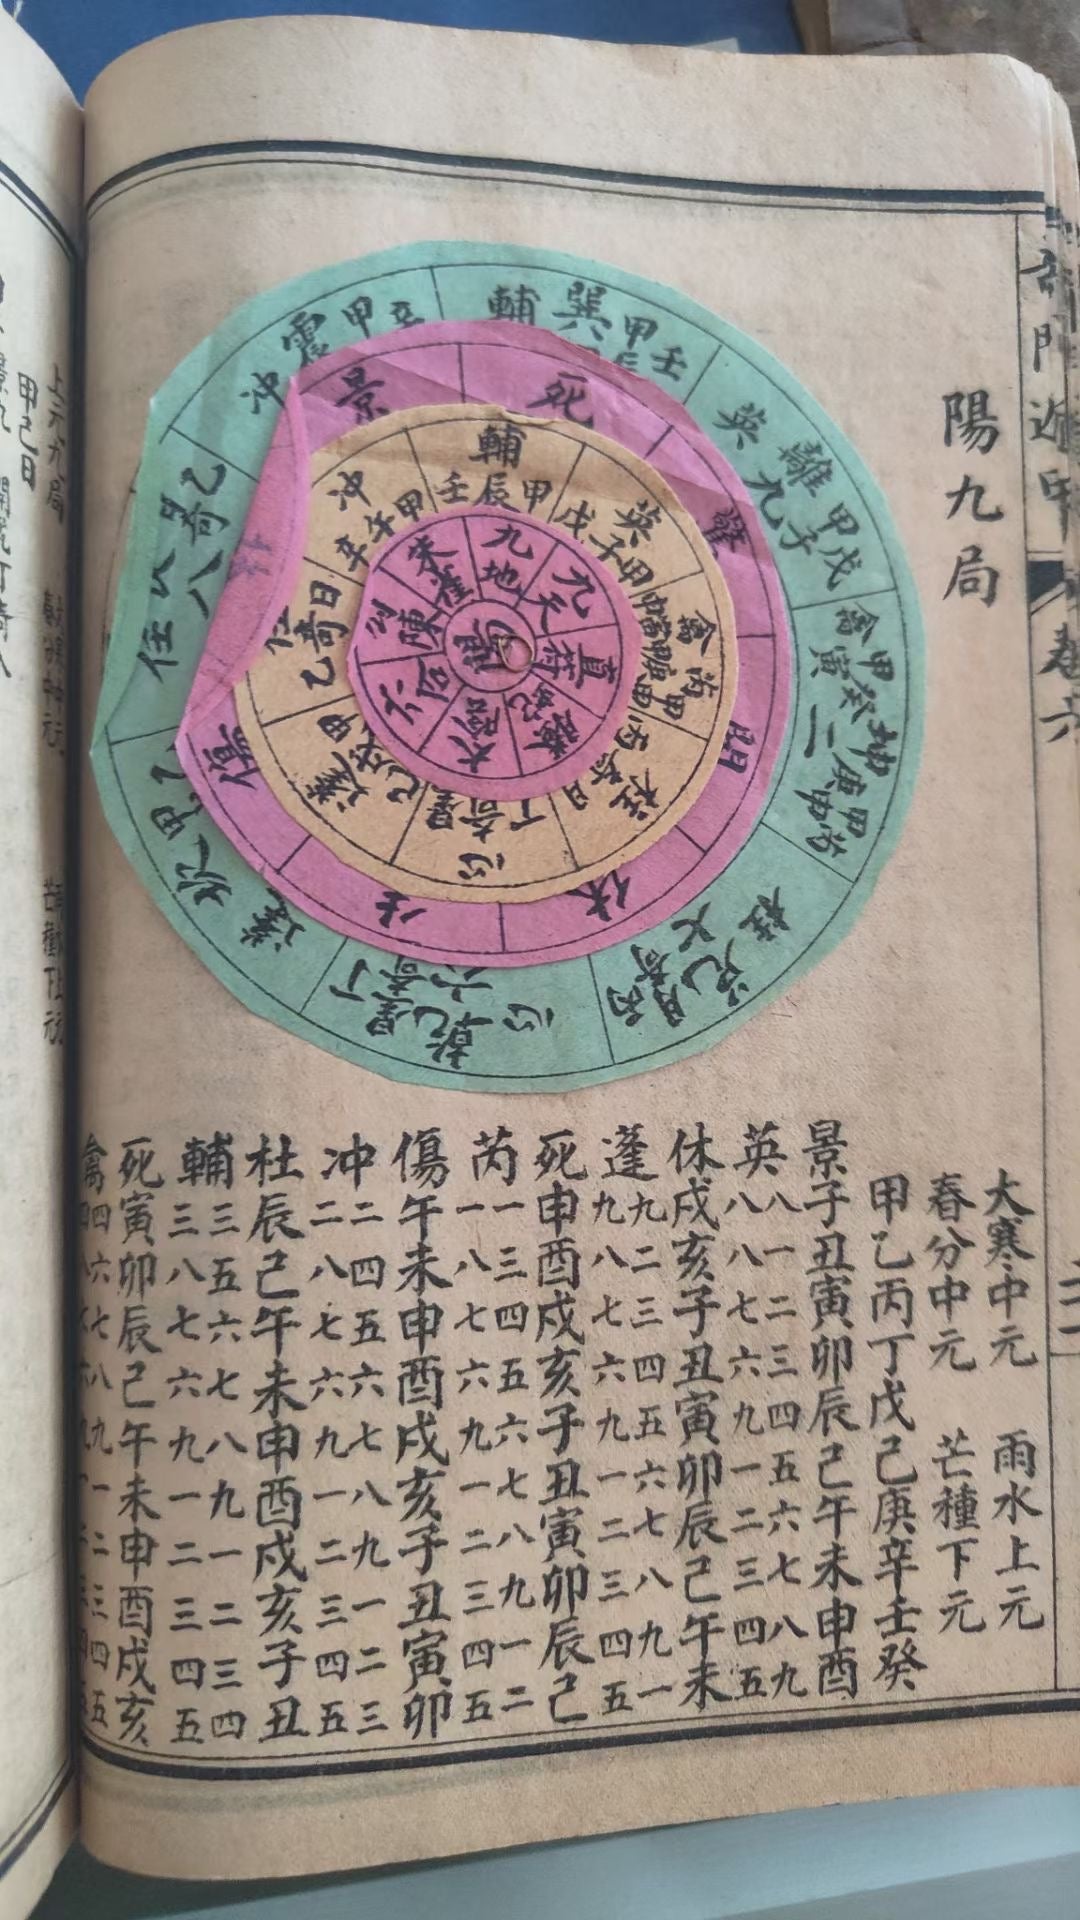 陽九局
大寒中元 雨水上元
春分中元 芒種下元
甲乙丙丁戊己庚辛壬癸
景子丑寅卯辰己午未申酉
英
八一二三四五六七八九
八八七六九一二三四五
休戌亥子丑寅卯辰己午未
蓬
九二三四五六七八九一
九八七六九一二三四五
死申酉戌亥子丑寅卯辰己
芮
一三四五六七八九一二
一八七六九一二三四五
傷午未申酉戌亥子丑寅卯
冲
二四五六七八九一二三
二八七六九一二三四五
杜辰己午未申酉戌亥子丑
輔
三五六七八九一二三四
三八七六九一二三四五
死寅卯辰己午未申酉戌亥
禽
四六七八九一二三四五
輔 巽 甲 壬
英 離 九 甲子戊
禽 甲寅癸 坤二 甲申庚 芮
柱 兌七 月奇丙
心 乾六 星奇丁
蓬 坎
任 艮八 日奇乙
冲 震 甲 辛
景
死
驚
開
休
生
傷
輔 甲辰壬
英 甲子戊
禽 芮
柱
心 星奇丁
蓬 甲戌己
任 日奇乙
冲 甲午辛
九地
九天
直符
螣蛇
太陰
六合
勾陳
朱雀
陽
卷六
甲己日
上元九局